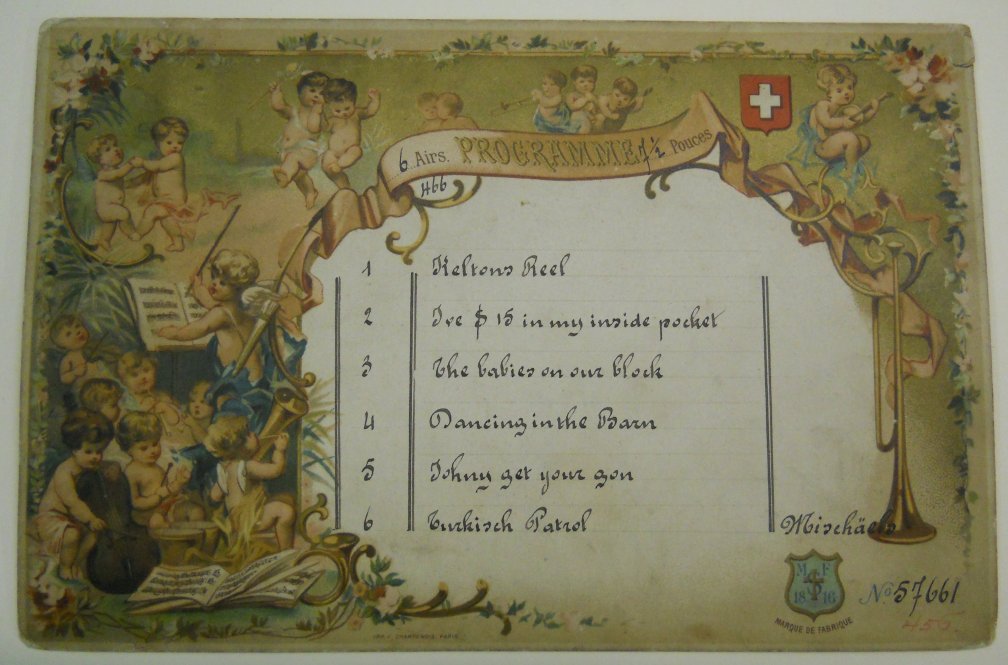 6 Airs. PROGRAMME 7½ Pouces
466
1 Keltons Reel
2 Ive $ 15 in my inside pocket
3 The babies on our block
4 Dancing in the Barn
5 Johny get your gon
6 Turkisch Patrol Mischäelis
M F
18 16
MARQUE DE FABRIQUE
No 57661
450
PARIS